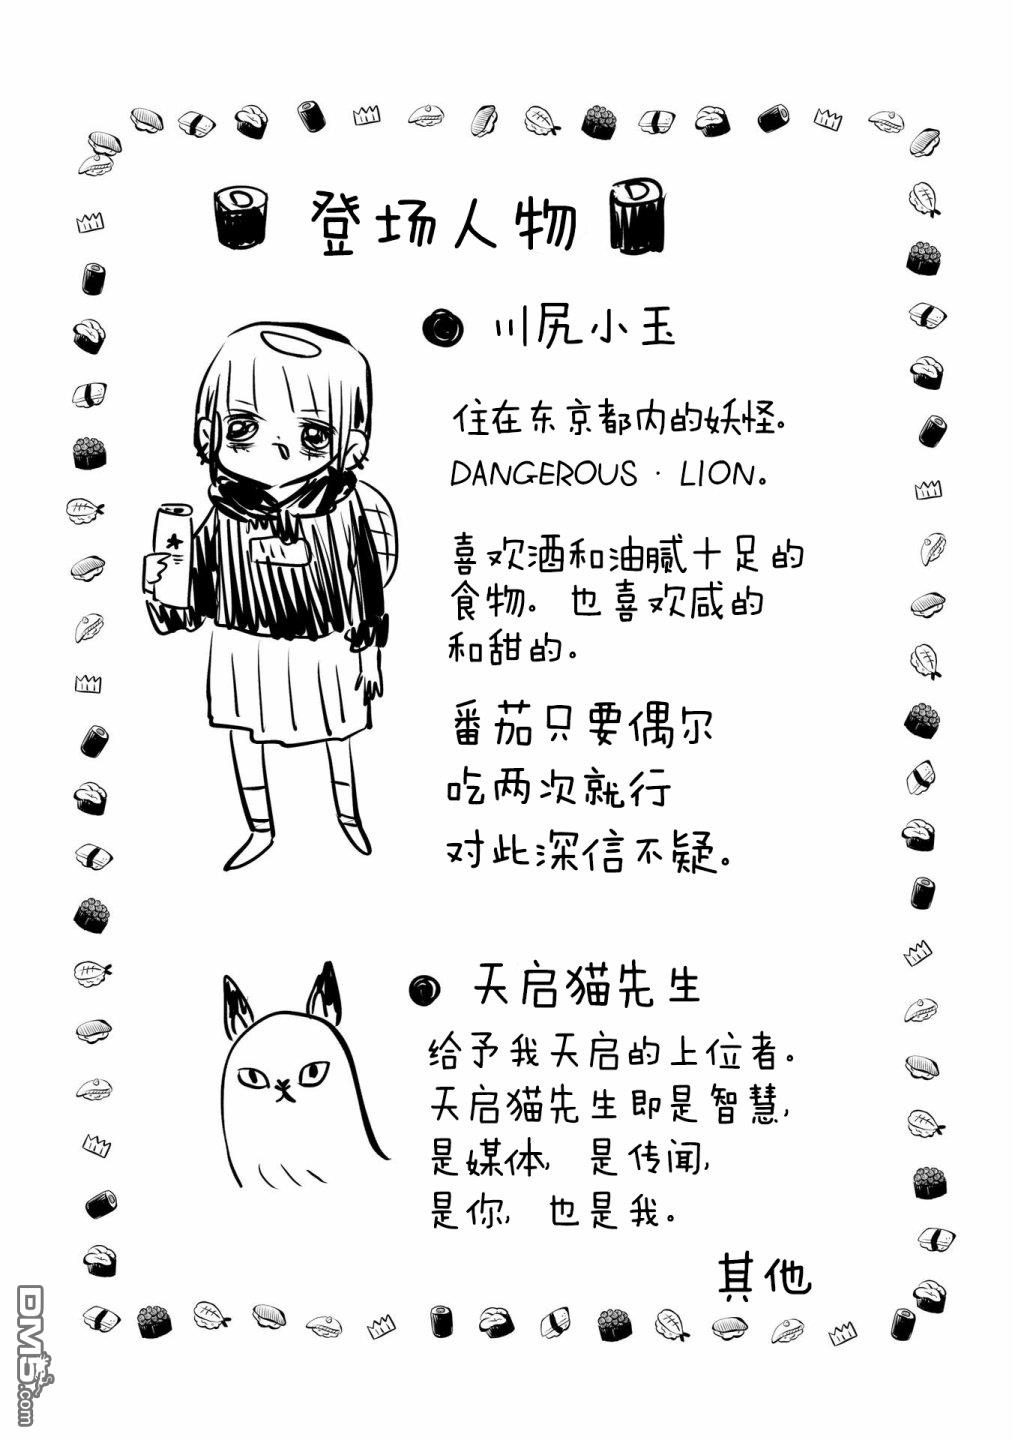 登场人物
川尻小玉
住在东京都内的妖怪。
DANGEROUS·LION。
喜欢酒和油腻十足的
食物。也喜欢咸的
和甜的。
番茄只要偶尔
吃两次就行
对此深信不疑。
天启猫先生
给予我天启的上位者。
天启猫先生即是智慧,
是媒体, 是传闻,
是你, 也是我。
其他
DM5.com